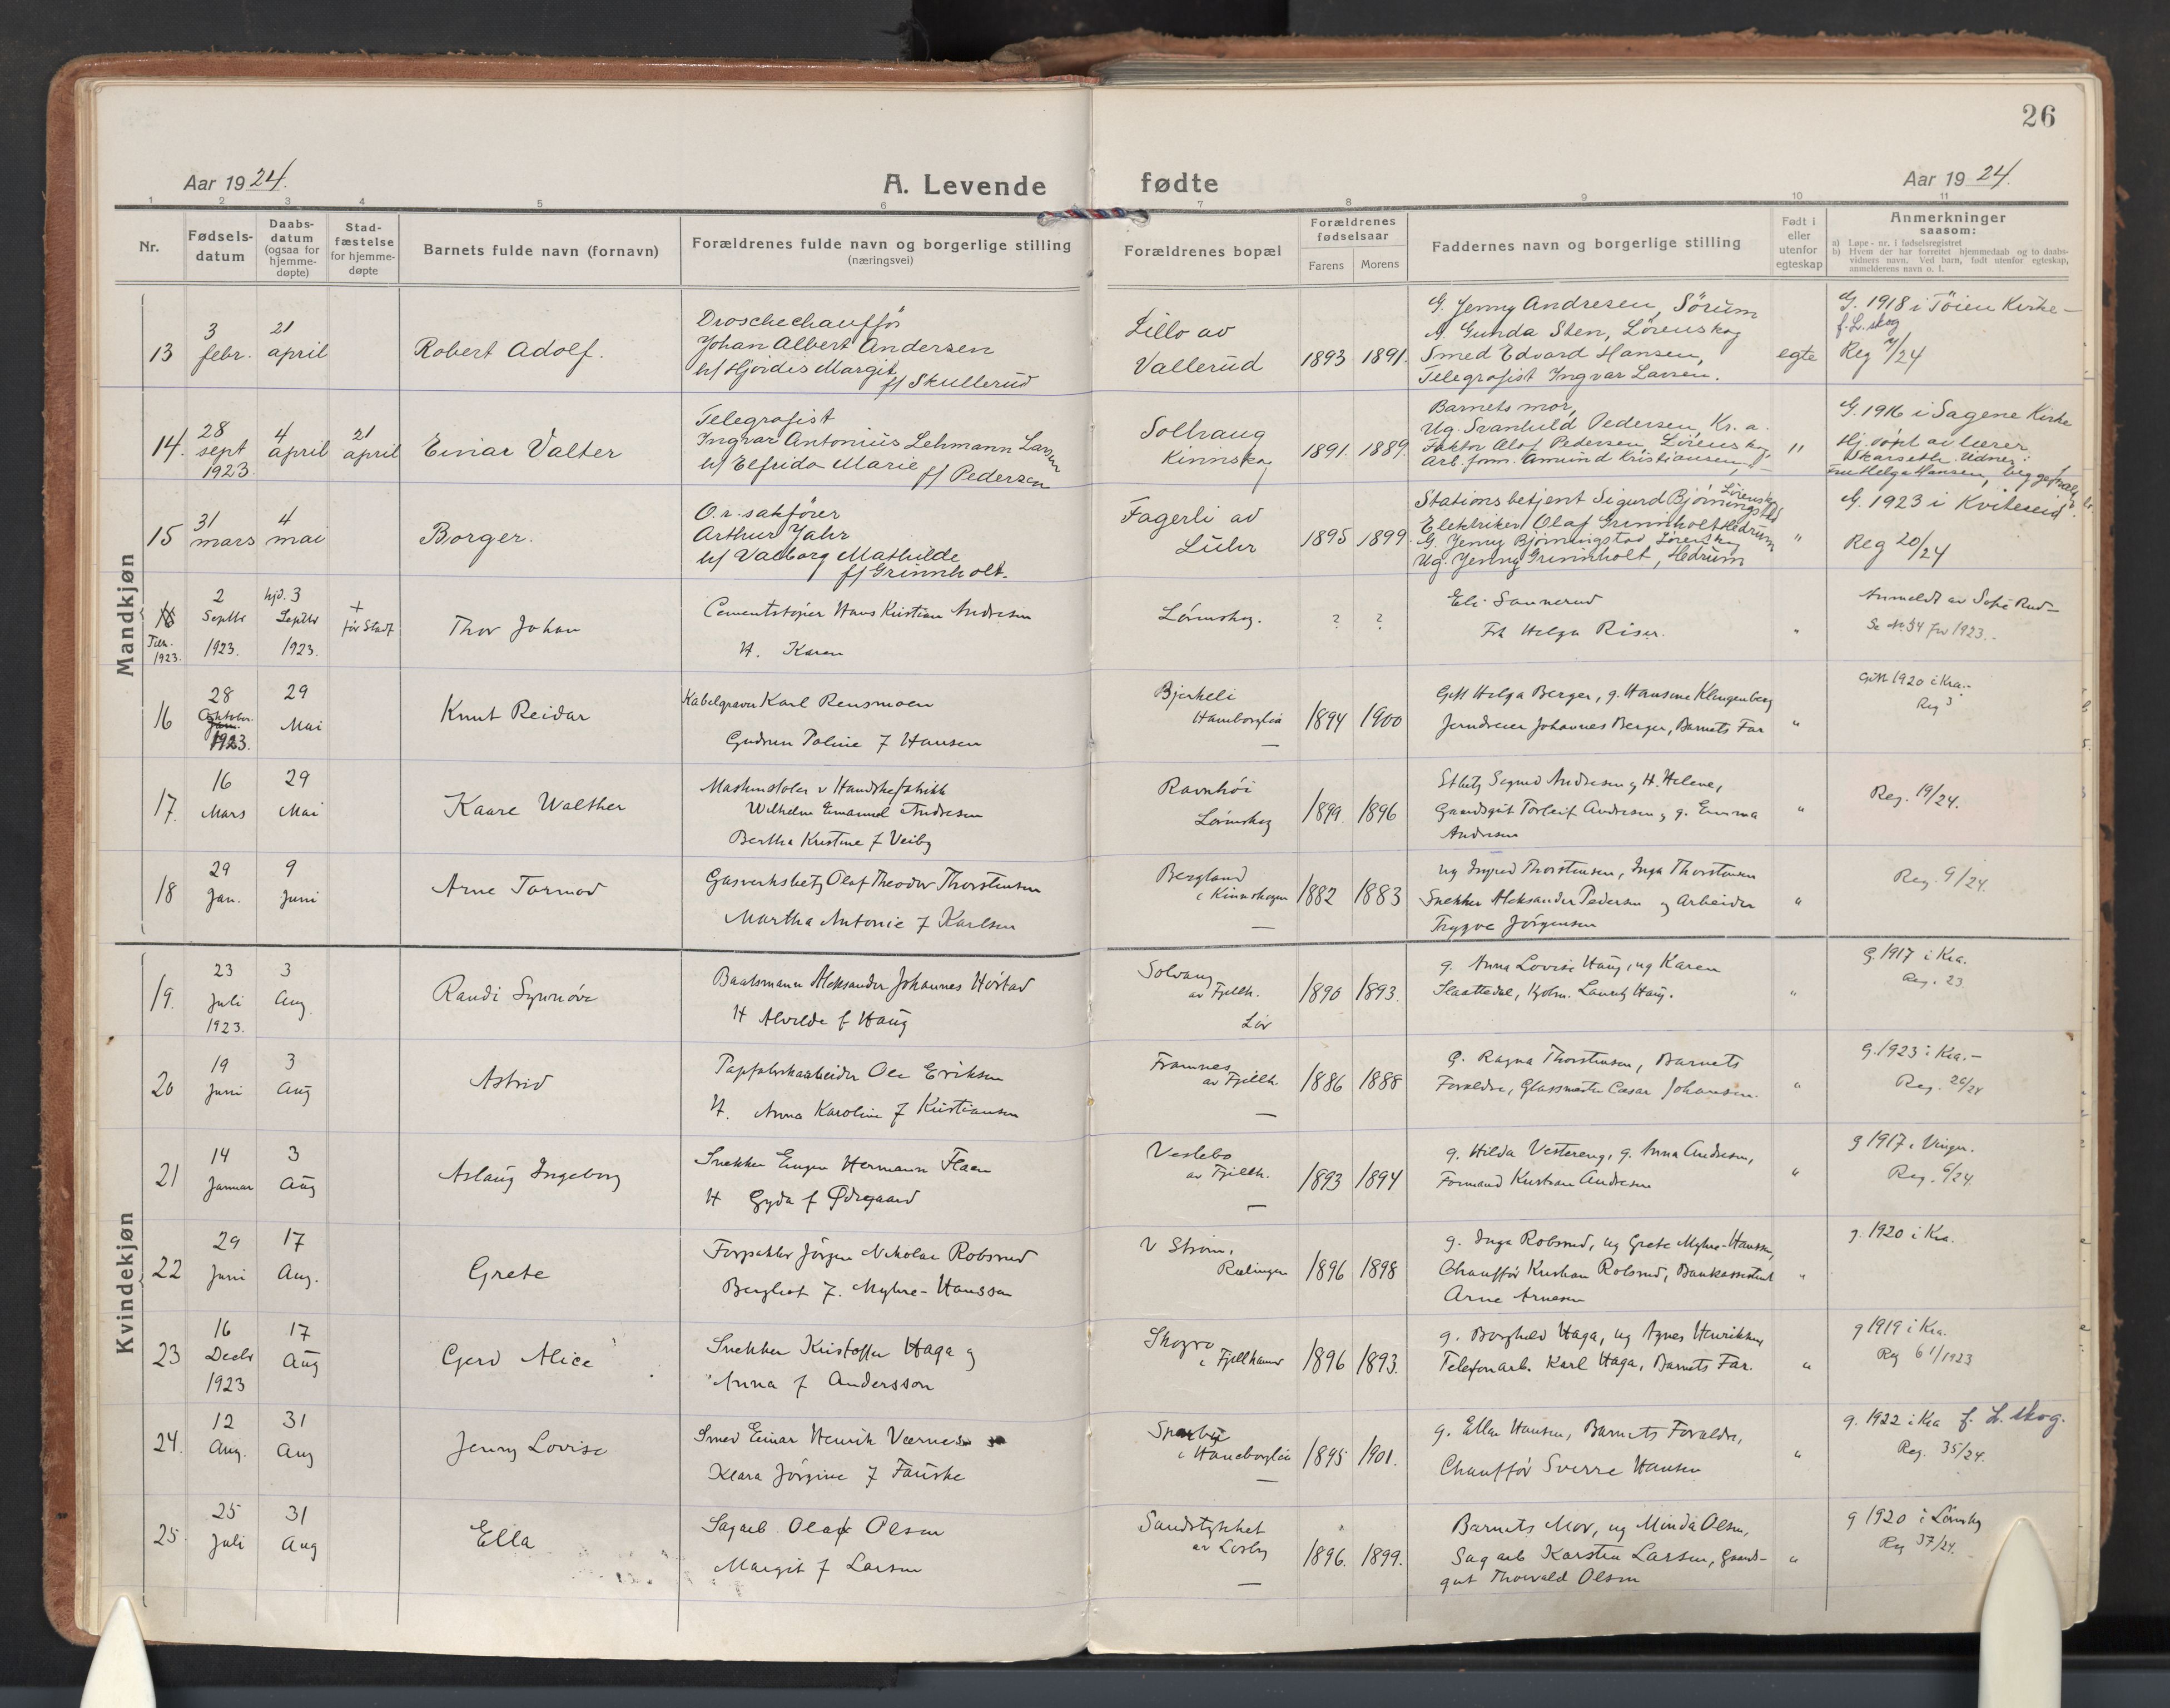 26
Aar 1924.
A. Levende fødte
Aar 1924.
1 2 3 4 5 6 7 8 9 10 11
Nr.
Fødsels-datum
Daabs-datum (ogsaa for hjemme-døpte)
Stad-fæstelse for hjemme-døpte
Barnets fulde navn (fornavn)
Forældrenes fulde navn og borgerlige stilling
(næringsvei)
Forældrenes bopæl
Forældrenes fødselsaar
Farens Morens
Faddernes navn og borgerlige stilling
Født i eller utenfor egteskap
Anmerkninger
saasom:
a) Løpe-nr. i fødselsregistret
b) Hvem der har forrettet hjemmedaab og to daabs-
vidners navn. Ved barn, født utenfor egteskap,
anmelderens navn o. l.
Mandkjøn
13
3 febr.
21 april
Robert Adolf.
Droschechauffør
Johan Albert Andersen
h/ Hjördis Margit
f/ Skullerud
Lillo av
Vallerud
1893 1891.
G. Jenny Andresen, Sörum
G. Gunda Sten, Lörenskog
Smed Edvard Hansen,
Telegrafist Ingvar Larsen.
egte
G. 1918 i Töien Kirke
f. L.skog
Reg /24
14.
28 sept 1923.
4 april
21 april
Einar Valter
Telegrafist
Ingvar Antonius Lehmann Larsen
h/ Elfrida Marie
f/ Pedersen
Solhaug
Kinnskog
1891. 1889.
Barnets mor,
Ug. Svanhild Pedersen, Kr. a.
Faktor Olaf Pedersen, Lörenskog,
Arb. form. Amund Kristiansen
"
G. 1916 i Sagene Kirke
Hj. döpt av lærer
Skarseth. Vidner:
Fru Helga Hansen,
15
31 mars
4 mai
Borger.
O.r. sakförer
Arthur Jahr
h/ Valborg Mathilde
f/ Grinnholt.
Fagerli av
Luhr
1895 1899.
Stationsbetjent Sigurd Björningstad Lörenskog
Elektriker Olaf Grinnholt Hedrum
G. Jenny Björningstad Lörenskog
Ug. Jenny Grinnholt, Hedrum
"
G. 1923 i Kviteseid
Reg 20/24
Tilh. 1923.
2 Septbr 1923.
hjd. 3 Septbr 1923.
+ før Stadf
Thor Johan
Cementstøper Hans Kristian Andresen
H. Karen
Lørenskog.
? ?
Eli Sannerud
Frk Helga Riser.
"
Anmeldt av Sofie Rud
Se No 34 for 1923.
16
28 Oktober 1923.
29 Mai
Knut Reidar
Kabelgraver Karl Rensmoen
Gudrun Poline f Hansen
Bjerkeli
Haneborglia
1894 1900
Gift Helga Berger, g. Hansine Klingenberg
Jerndreier Johannes Berger, Barnets Far
"
Gift 1920 i Kra.
Reg 3
17.
16 Mars
29 Mai
Kaare Walther
Wilhelm Emanuel Andresen
Bertha Kristine f Veiby
Ravnhöi
Lörenskog
1899. 1896
Gaardsgut Torleif Andresen, g. Emma
Andresen
"
Reg. 19/24.
18
29 Jan.
9 Juni
Arne Tormod
Gasverksbetj Olaf Theodor Thorstensen
Martha Antonie f Karlsen
Bergland
i Kinnskogen
1882 1883
ug Ingrid Thorstensen, Inga Thorstensen
Snekker Aleksander Pedersen og Arbeider
Trygve Jörgensen
"
Reg. 9/24.
Kvindekjøn
19.
23 Juli 1923.
3 Aug.
Randi Synnöve
Baatsmann Aleksander Johannes Höstad
H Alvilde f Haug
Solvang
av Fjellh.
Lör
1890 1893.
g. Anna Lovise Haug, ug Karen
Slaattedal, Lauritz Haug.
"
G. 1917 i Kra.
Reg. 23
20
19 Juni
3 Aug
Astrid
Papfabrikarbeider Ole Eriksen
H. Anna Karoline f Kristiansen
Framnes
av Fjellh.
1886 1888
G. Ragna Thorstensen, Barnets
Forældre, Glassmester Cæsar Johansen.
"
G. 1923 i Kra.
Reg. 26/24
21
14 Januar
3 Aug
Aslaug Ingeborg
Snekker Eugen Hermann Flaen
H Gyda f Ödegaard
Veslebo
av Fjellh.
1893 1894
g. Hilda Vestereng, g. Anna Andresen,
Formand Kristian Andresen
"
g 1917 i Vinger.
Reg. 6/24.
22
29 Juni
17 Aug.
Grete
Forpakter Jörgen Nikolai Robsrud
Bergliot f. Myhre-Hanssen
V Ström,
Rælingen
1896 1898
g. Inga Robsrud, ug Grete Myhre-Hanssen,
Chauffør Kristian Robsrud, Bankassistent
Arne Arnesen
"
g. 1920 i Kra.
23
16 Decbr 1923
17 Aug
Gerd Alice
Snekker Kristoffer Haga og
Anna f Andersson
Skogro
i Fjellhamar
1896 1893.
g. Borghild Haga, ug Agnes Henriksen,
Telefonarb. Karl Haga, Barnets Far.
"
g 1919 i Kra.
Reg 61/1923
24.
12 Aug.
31 Aug
Jenny Lovise
Smed Einar Henrik Værnes
Klara Jörgine f Fauske
i Haneborglia
1895 1901.
g. Ella Hansen, Barnets Forældre,
Chauffør Sverre Hansen
"
g. 1922 i Kra f. L.skog.
Reg. 35/24.
25.
25 Juli
31 Aug
Ella
Sagarb. Olaf Olsen
Margit f Larsen
Sandstykket
av Losby
1896. 1899.
Barnets Mor, ug Minda Olsen,
Sagarb Karsten Larsen, Gaards-
gut Thorvald Olsen
"
g 1920 i Lörenskog
Reg 37/24.